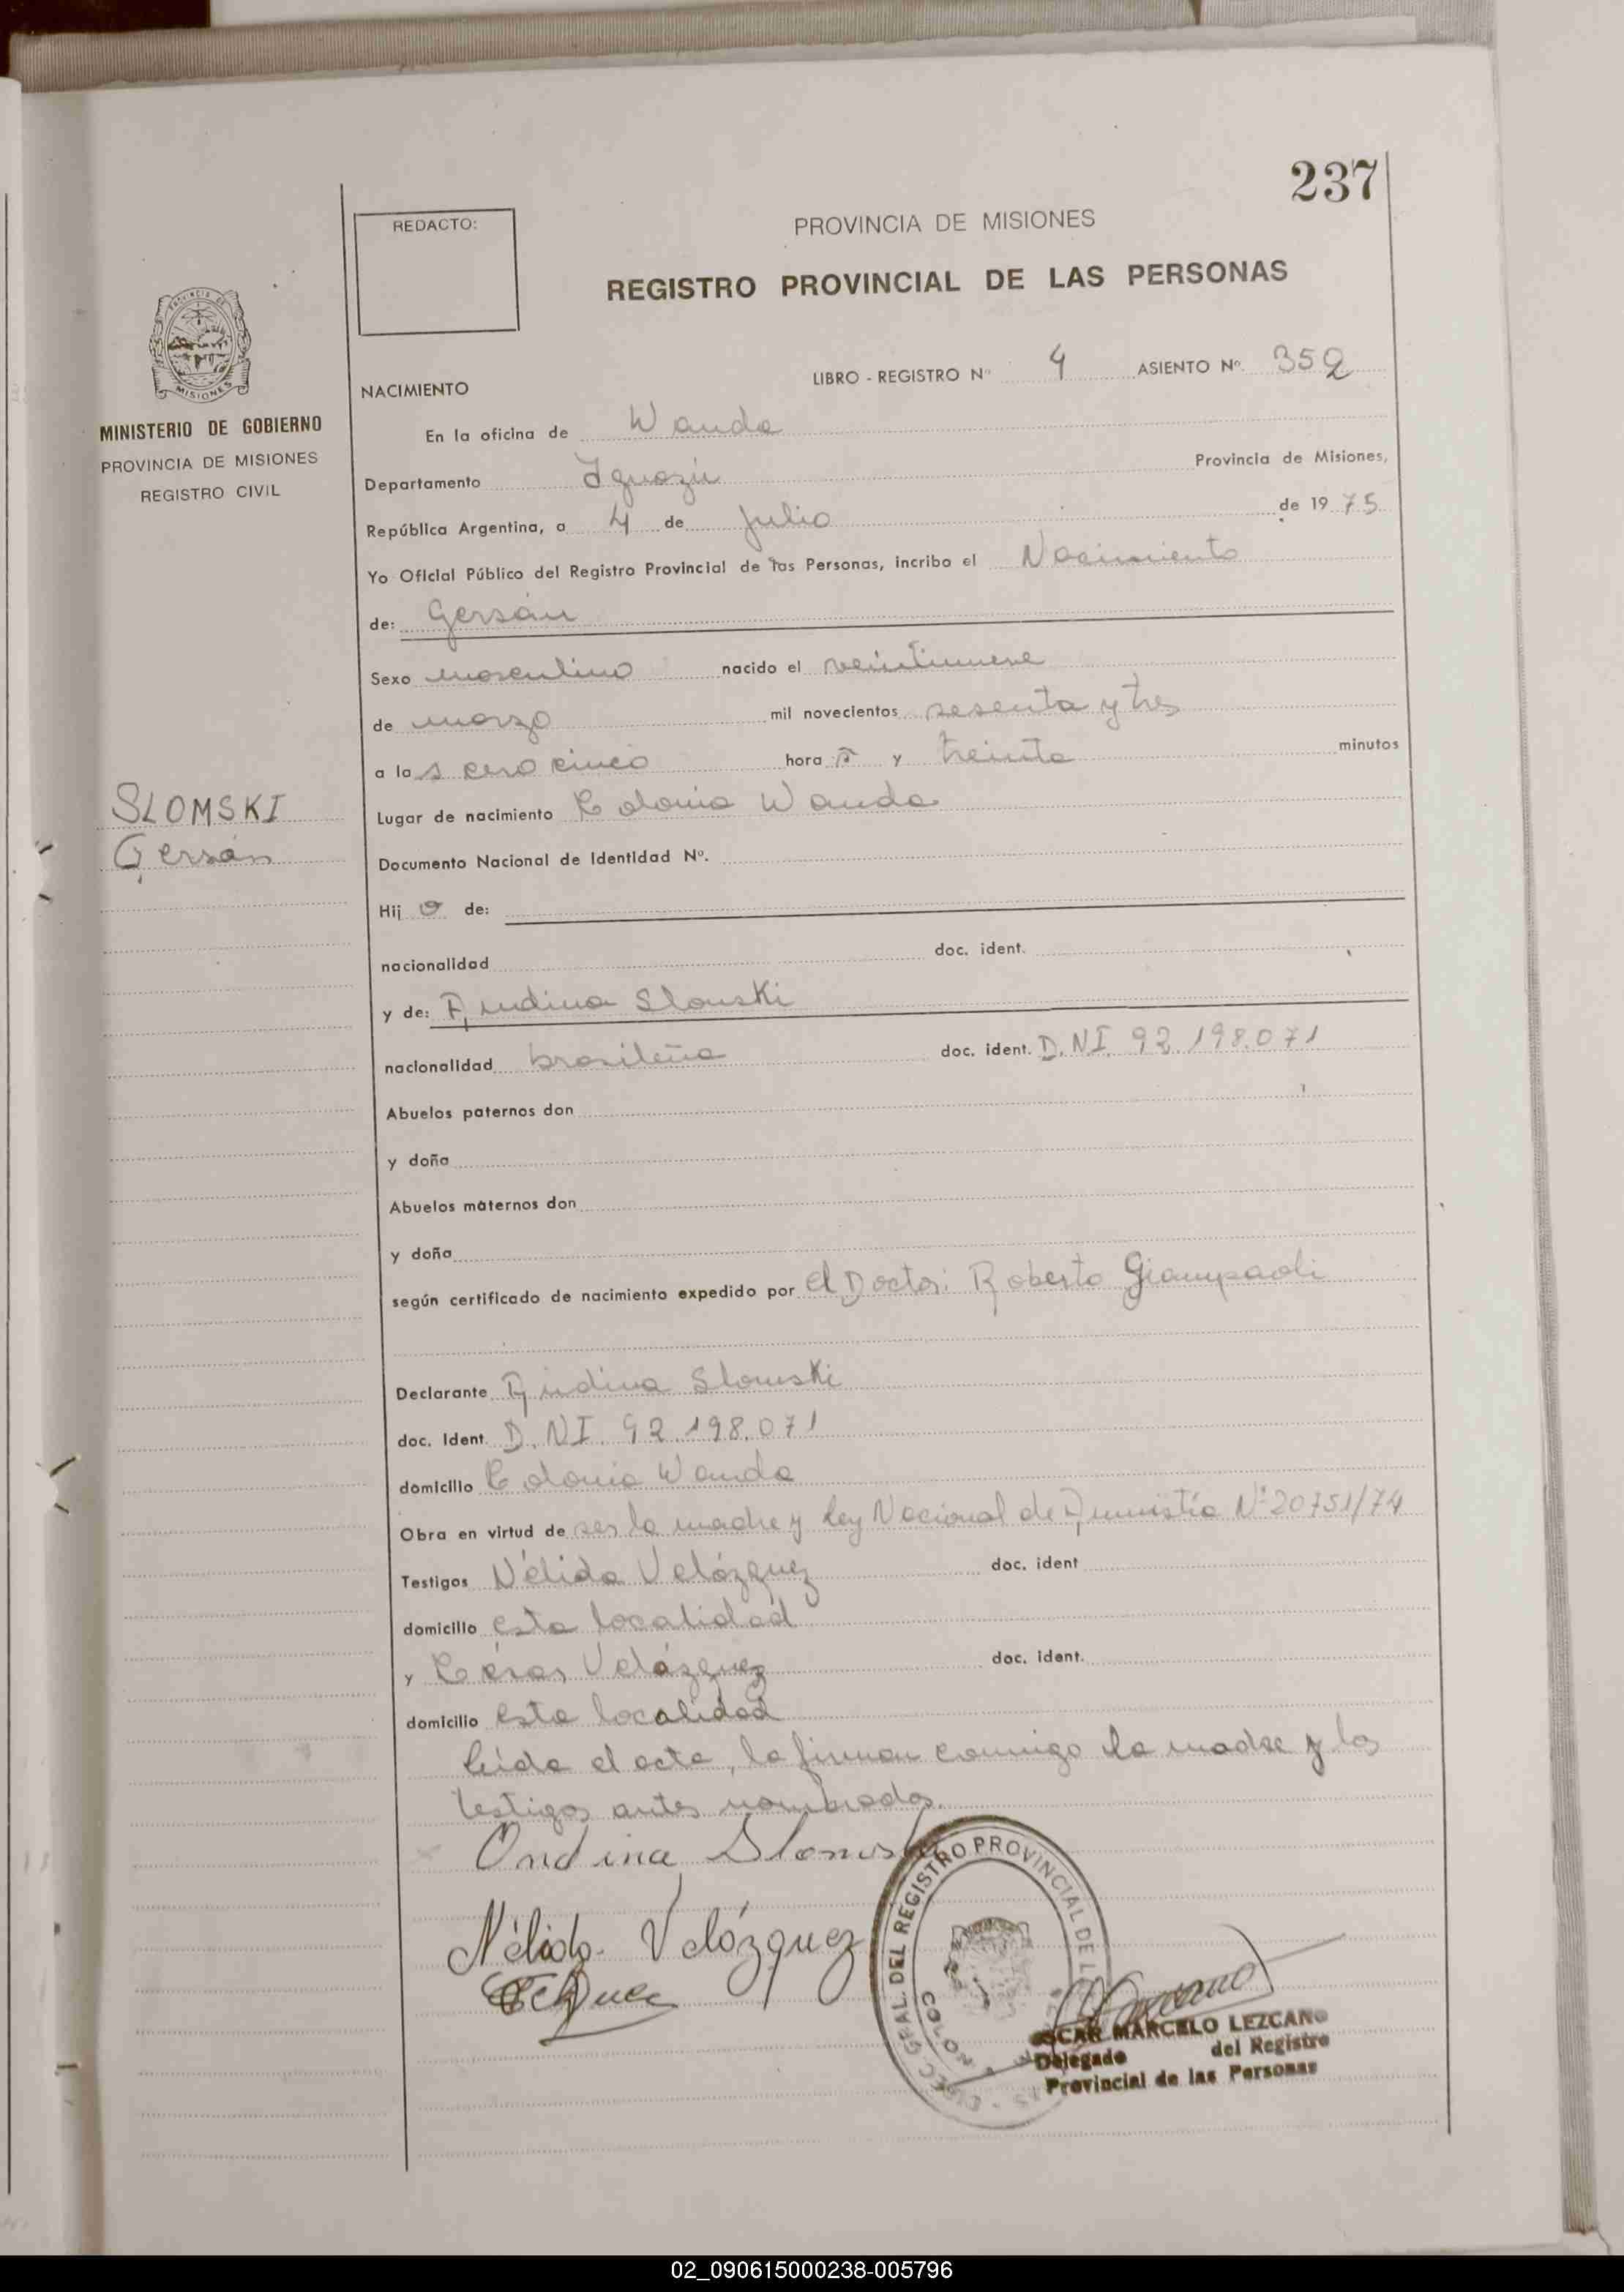 237
REDACTO:
PROVINCIA DE MISIONES
REGISTRO PROVINCIAL DE LAS PERSONAS
PROVINCIA DE
MISIONES
MINISTERIO DE GOBIERNO
PROVINCIA DE MISIONES
REGISTRO CIVIL
NACIMIENTO
LIBRO - REGISTRO Nº 4 ASIENTO Nº 352
En la oficina de Wanda
Departamento Iguazú Provincia de Misiones,
República Argentina, a 4 de julio de 1975
Yo Oficial Público del Registro Provincial de las Personas, incribo el Nacimiento
de: Gersán
Sexo masculino nacido el veintinueve
de marzo mil novecientos sesenta y tres
a las cero cinco hora s y treinta minutos
SLOMSKI
Gersán
Lugar de nacimiento Colonia Wanda
Documento Nacional de Identidad Nº.
Hij o de:
nacionalidad doc. ident.
y de: Andina Slomski
nacionalidad brasileña doc. ident. D.NI. 92.198.071
Abuelos paternos don
y doña
Abuelos maternos don
y doña
según certificado de nacimiento expedido por el Doctor: Roberto Giampaoli
Declarante Andina Slomski
doc. Ident. D.NI. 92.198.071
domicilio Colonia Wanda
Obra en virtud de ser la madre y Ley Nacional de Amnistía Nº 20751/74
Testigos Nélida Velázquez doc. ident
domicilio esta localidad
y César Velázquez doc. ident.
domicilio esta localidad
Leída el acta, la firman conmigo la madre y los
testigos antes nombrados.
Ondina Slomski
Nélida Velázquez
DIREC. GRAL. DEL REGISTRO PROVINCIAL DE L
OSCAR MARCELO LEZCANO
Delegado del Registro
Provincial de las Personas
02_090615000238-005796